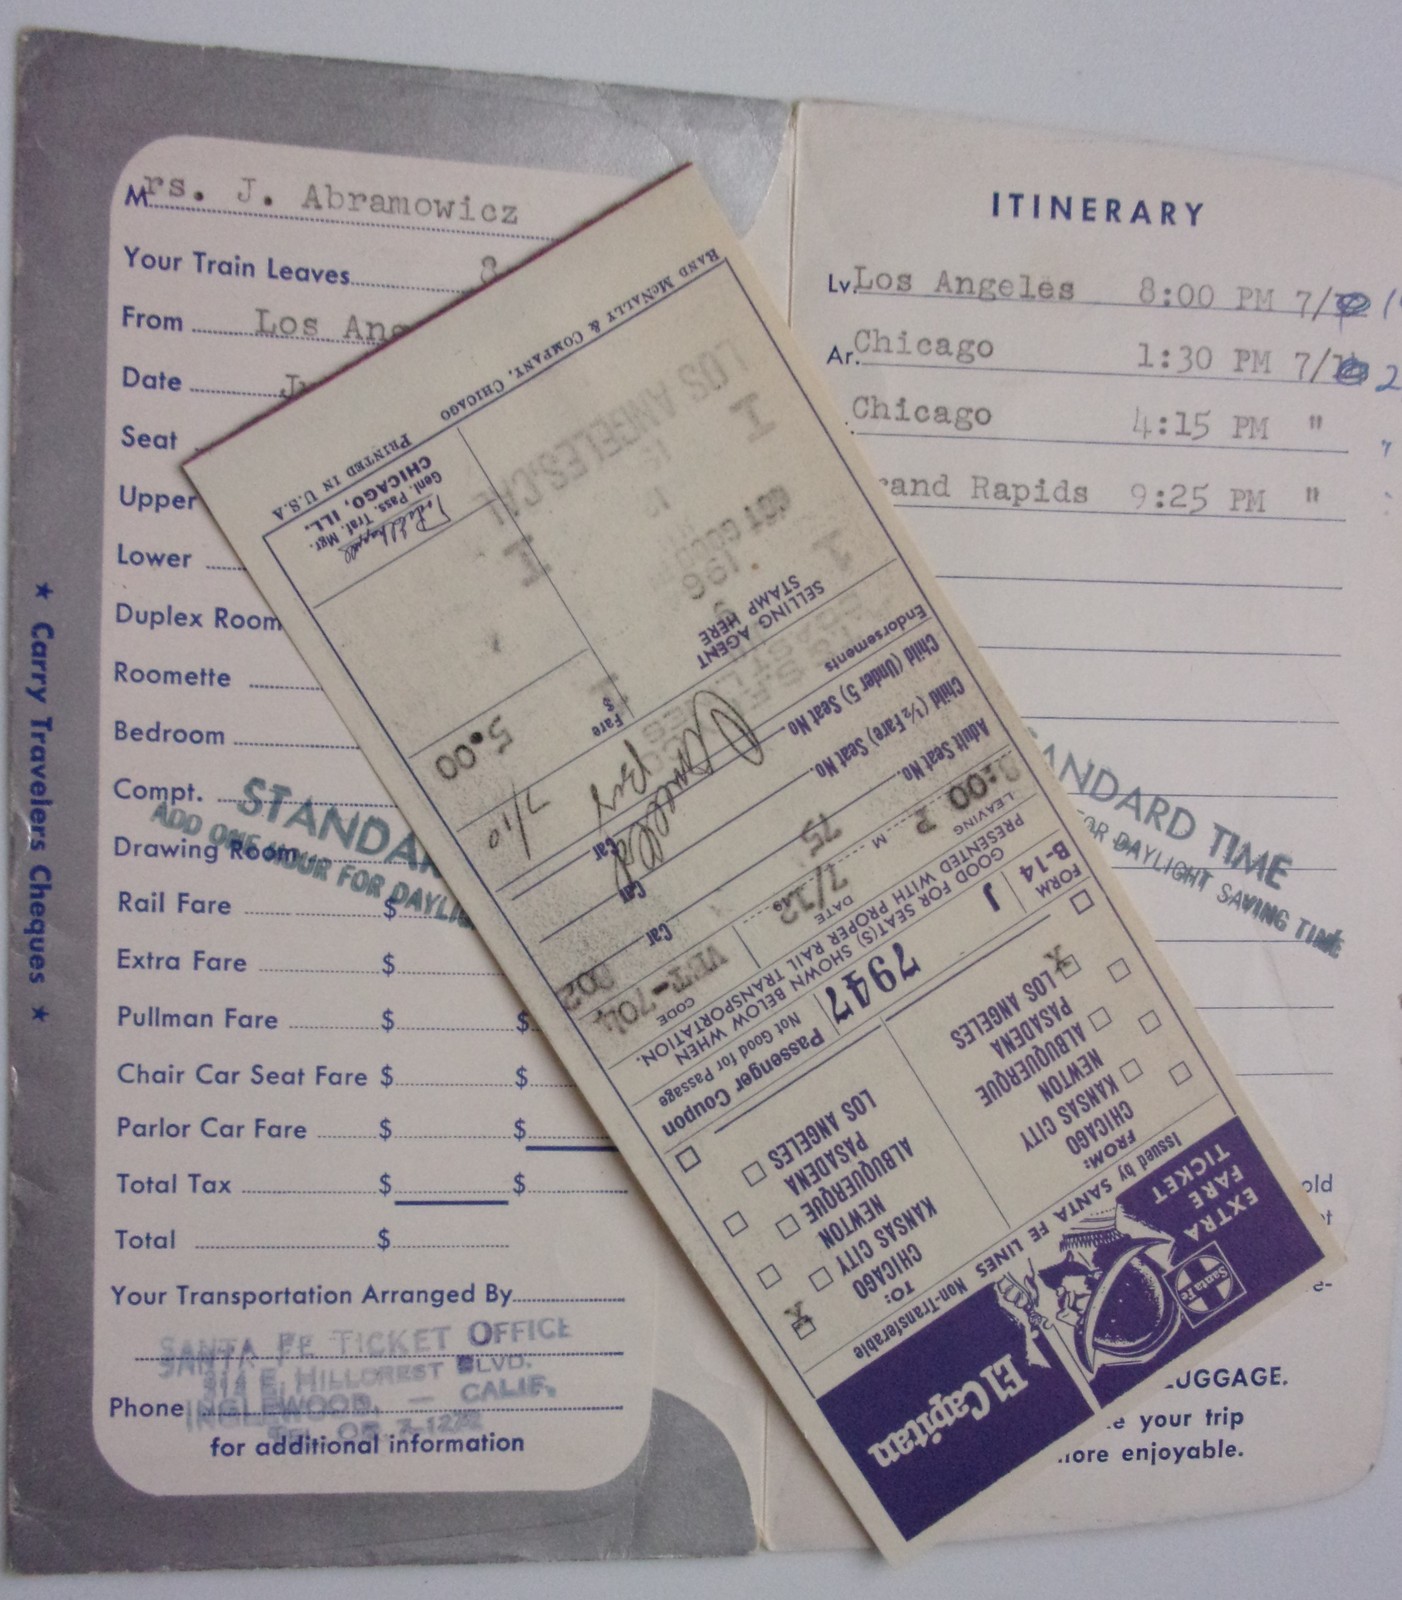 Mrs. J. Abramowicz
Your Train Leaves 8
From Los Ang
Date Ju
Seat
Upper
Lower
Duplex Room
Roomette
Bedroom
Compt.
Drawing Room
Rail Fare $
Extra Fare $
Pullman Fare $ $
Chair Car Seat Fare $ $
Parlor Car Fare $ $
Total Tax $ $
Total $
Your Transportation Arranged By
SANTA FE TICKET OFFICE
314 E. HILLCREST BLVD.
INGLEWOOD, — CALIF.
Phone
for additional information
STANDAR
ADD ONE HOUR FOR DAYLIG
★ Carry Travelers Cheques ★
ITINERARY
Lv. Los Angeles 8:00 PM 7/
Ar. Chicago 1:30 PM 7/ 2
Chicago 4:15 PM "
rand Rapids 9:25 PM "
ANDARD TIME
FOR DAYLIGHT SAVING TIME
old
UGGAGE.
e your trip
more enjoyable.
El Capitan
EXTRA
FARE
TICKET
Santa Fe
Issued by SANTA FE LINES Non-Transferable
FROM:
CHICAGO
KANSAS CITY
NEWTON
ALBUQUERQUE
PASADENA
X LOS ANGELES
TO:
X CHICAGO
KANSAS CITY
NEWTON
ALBUQUERQUE
PASADENA
LOS ANGELES
FORM
B-14
1
7947
Passenger Coupon
Not Good for Passage
GOOD FOR SEAT(S) SHOWN BELOW WHEN
PRESENTED WITH PROPER RAIL TRANSPORTATION.
LEAVING DATE CODE
8:00 P M 7/12 VET-704
Adult Seat No. 75 Car 802
Child (½ Fare) Seat No. Car
Child (Under 5) Seat No. Car
Cancelled
7/10
Endorsements
SELLING AGENT
STAMP HERE
Fare
$
5.00
NOT GOOD
196
LOS ANGELES, CAL
Genl. Pass. Traf. Mgr.
CHICAGO, ILL.
RAND MCNALLY & COMPANY, CHICAGO PRINTED IN U.S.A